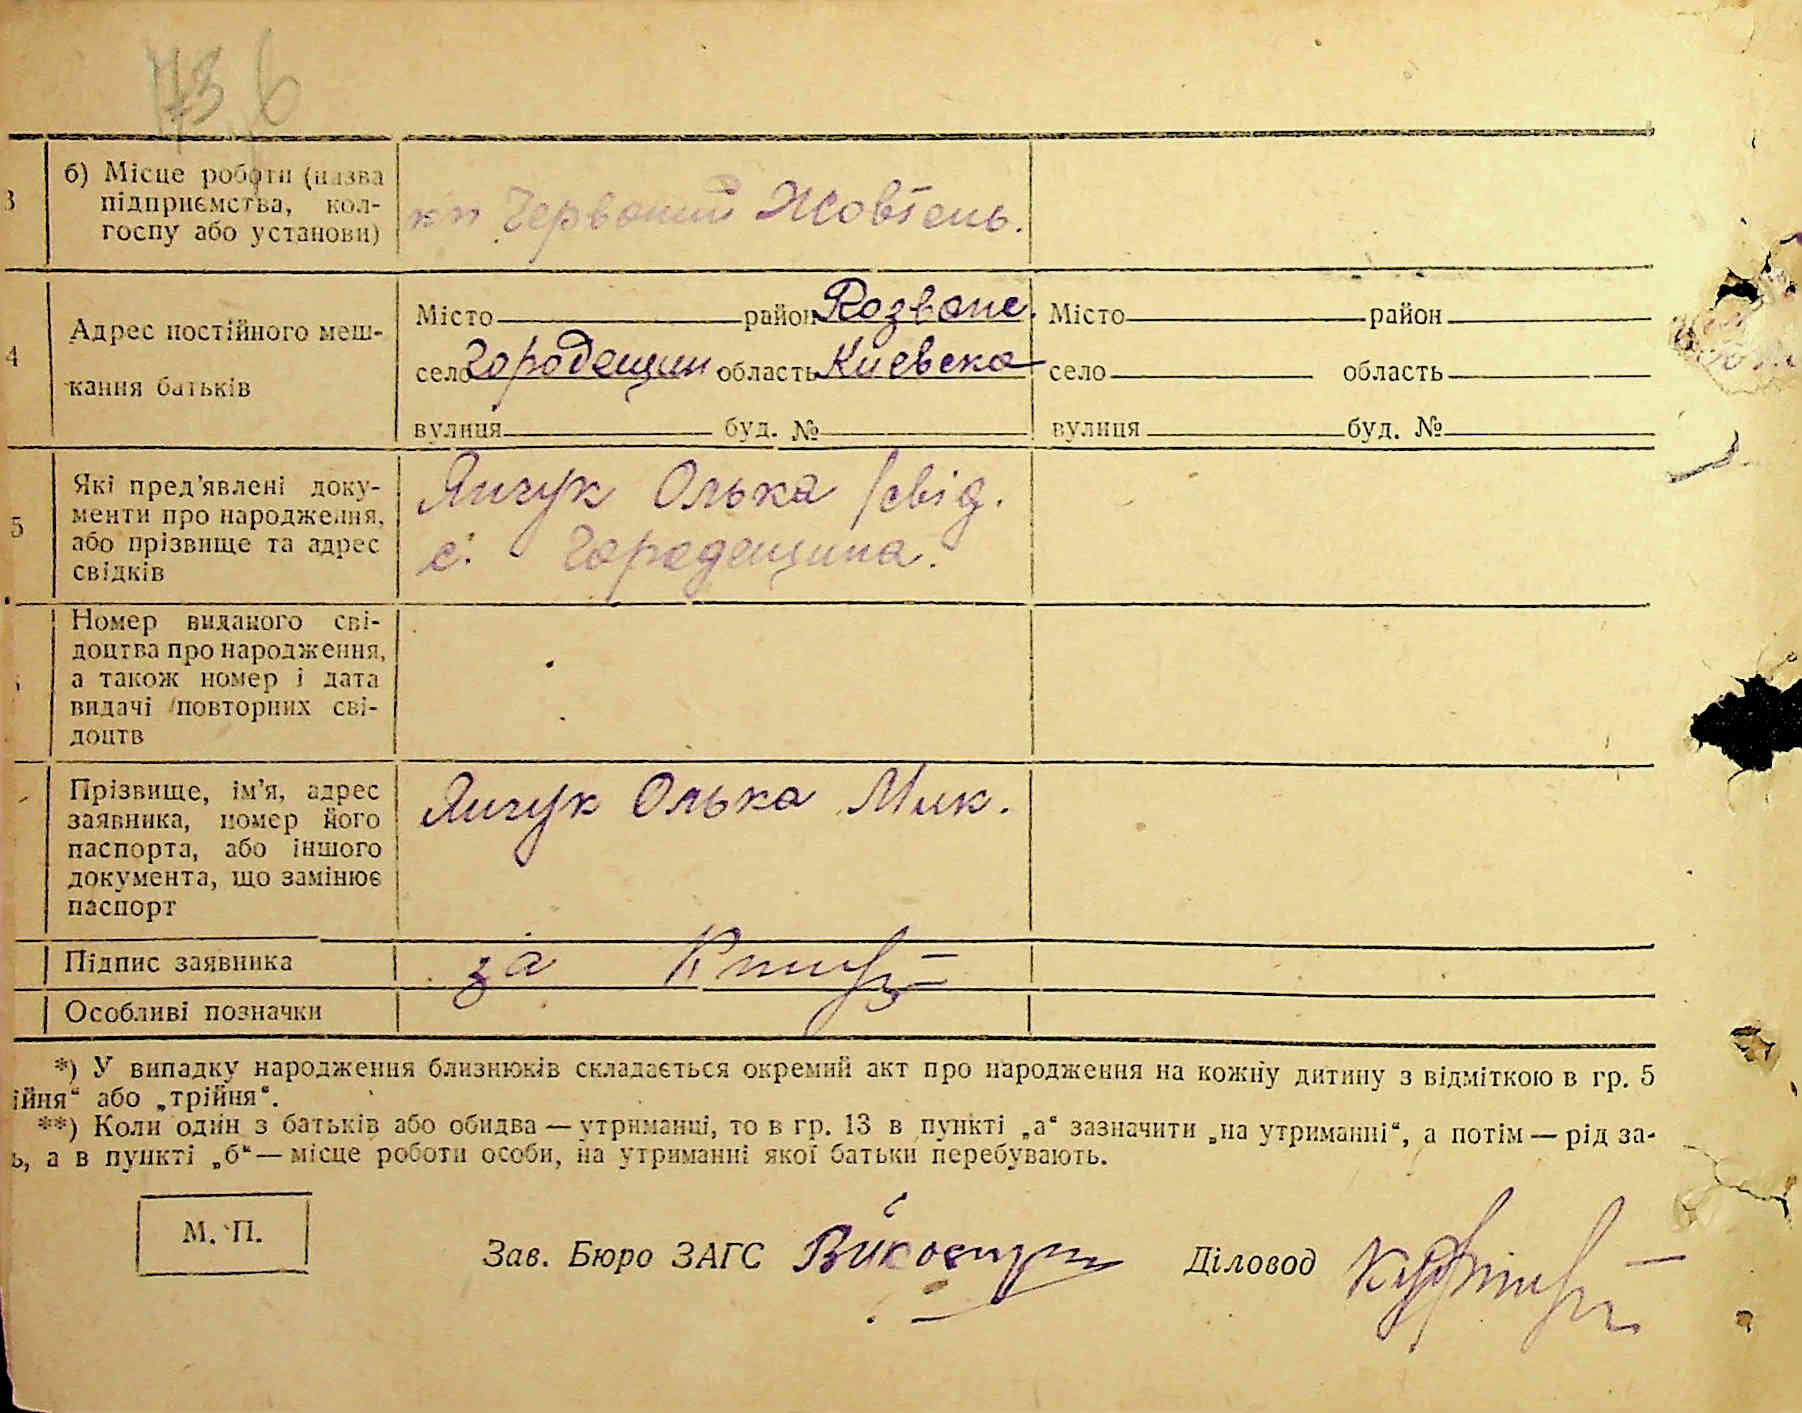 3 б) Місце роботи (назва
підприємства, кол-
госпу або установи)
Червоний Жовтень.
4 Адрес постійного меш-
кання батьків
Місто район Розваже.
село Городещин область Киевска
вулиця буд. №
Місто район
село область
вулиця буд. №
5 Які пред'явлені доку-
менти про народження,
або прізвище та адрес
свідків
Янчук Олька /свід.
с. Городещина.
Номер виданого сві-
доцтва про народження,
а також номер і дата
видачі повторних сві-
доцтв
Прізвище, ім'я, адрес
заявника, номер його
паспорта, або іншого
документа, що замінює
паспорт
Янчук Олька Мик.
Підпис заявника
за
Особливі позначки
*) У випадку народження близнюків складається окремий акт про народження на кожну дитину з відміткою в гр. 5
ійня“ або „трійня“.
**) Коли один з батьків або обидва — утриманці, то в гр. 13 в пункті „а“ зазначити „на утриманні“, а потім — рід за-
ь, а в пункті „б“ — місце роботи особи, на утриманні якої батьки перебувають.
М. П.
Зав. Бюро ЗАГС
Діловод